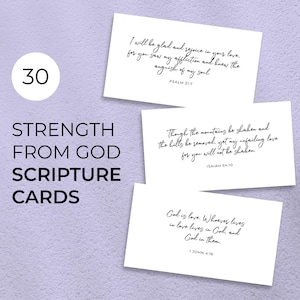 30
STRENGTH
FROM GOD
SCRIPTURE
CARDS
I will be glad and rejoice in your love,
for you saw my affliction and knew the
anguish of my soul.
PSALM 31:7
Though the mountains be shaken and
the hills be removed, yet my unfailing love
for you will not be shaken
ISAIAH 54:10
God is love. Whoever lives
in love lives in God, and
God in them.
1 JOHN 4:16